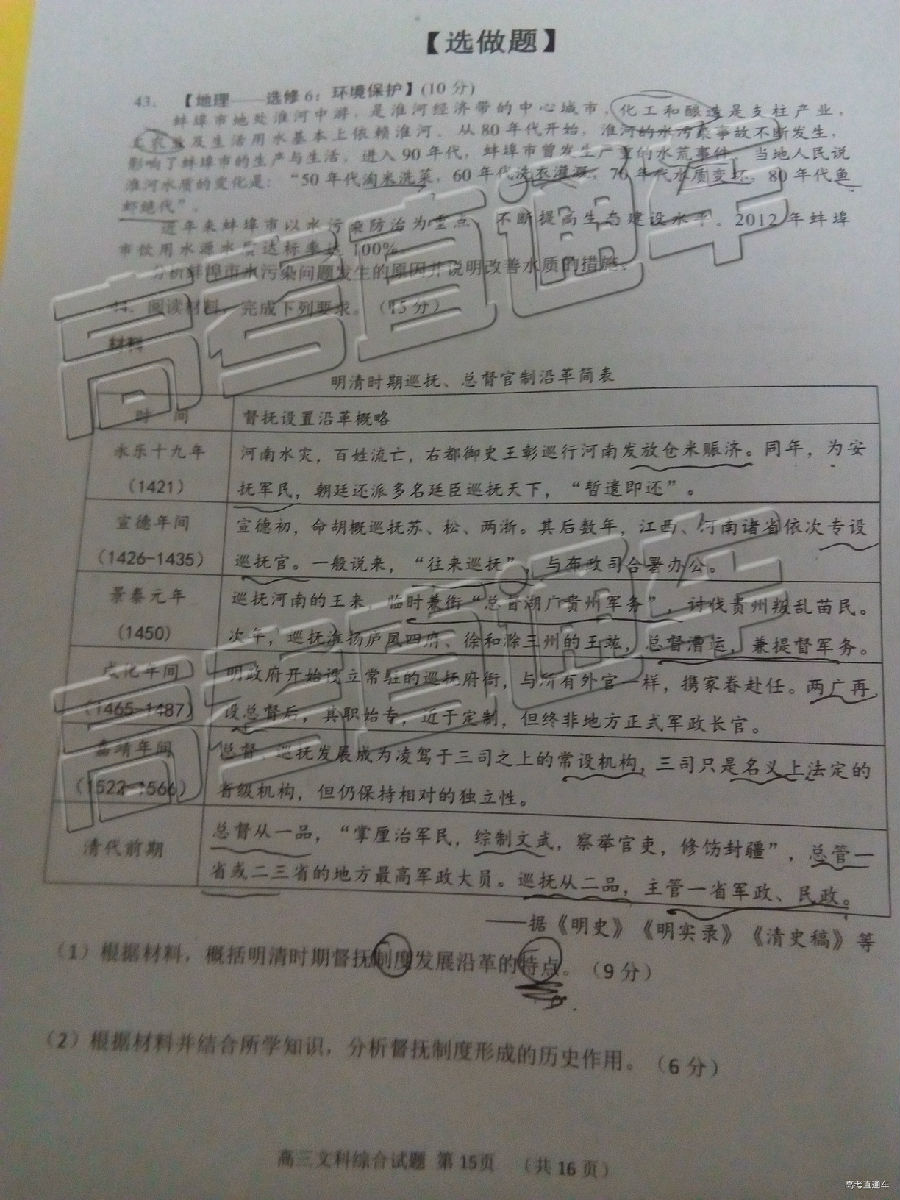 【选做题】
43. 【地理——选修6：环境保护】(10 分)
蚌埠市地处淮河中游，是淮河经济带的中心城市，化工和酿造是支柱产业，
及生活用水基本上依赖淮河。从 80 年代开始，淮河的水污染事故不断发生，
影响了蚌埠市的生产与生活，进入 90 年代，蚌埠市曾发生严重的水荒事件。当地人民说
淮河水质的变化是：“50 年代淘米洗菜，60 年代洗衣灌溉，70 年代水质变坏，80 年代鱼
虾绝代”。
近年来蚌埠市以水污染防治为重点，不断提高生态建设水平。2012 年蚌埠
市饮用水源水质达标率达 100%。
分析蚌埠市水污染问题发生的原因并说明改善水质的措施。
44. 阅读材料，完成下列要求。（15 分）
材料
明清时期巡抚、总督官制沿革简表
时 间 督抚设置沿革概略
永乐十九年 河南水灾，百姓流亡，右都御史王彰巡行河南发放仓米赈济。同年，为安
（1421） 抚军民，朝廷还派多名廷臣巡抚天下，“暂遣即还”。
宣德年间 宣德初，命胡概巡抚苏、松、两浙。其后数年，江西、河南诸省依次专设
（1426-1435） 巡抚官。一般说来，“往来巡抚”，与布政司合署办公。
景泰元年 巡抚河南的王来 临时兼衔“总督湖广贵州军务”，讨伐贵州叛乱苗民。
（1450） 次年，巡抚淮扬庐凤四府、徐和滁三州的王竑，总督漕运，兼提督军务。
成化年间 明政府开始设立常驻的巡抚府衙，与所有外官一样，携家眷赴任。两广再
（1465-1487） 设总督后，其职始专，近于定制，但终非地方正式军政长官。
嘉靖年间 总督、巡抚发展成为凌驾于三司之上的常设机构，三司只是名义上法定的
（1522-1566） 省级机构，但仍保持相对的独立性。
清代前期 总督从一品，“掌厘治军民，综制文武，察举官吏，修饬封疆”，总管一
省或二三省的地方最高军政大员。巡抚从二品，主管一省军政、民政。
——据《明史》《明实录》《清史稿》等
（1）根据材料，概括明清时期督抚制度发展沿革的特点。（9 分）
（2）根据材料并结合所学知识，分析督抚制度形成的历史作用。（6 分）
高三文科综合试题 第 15页 （共 16 页）
高考直通车
高考直通车
高考直通车